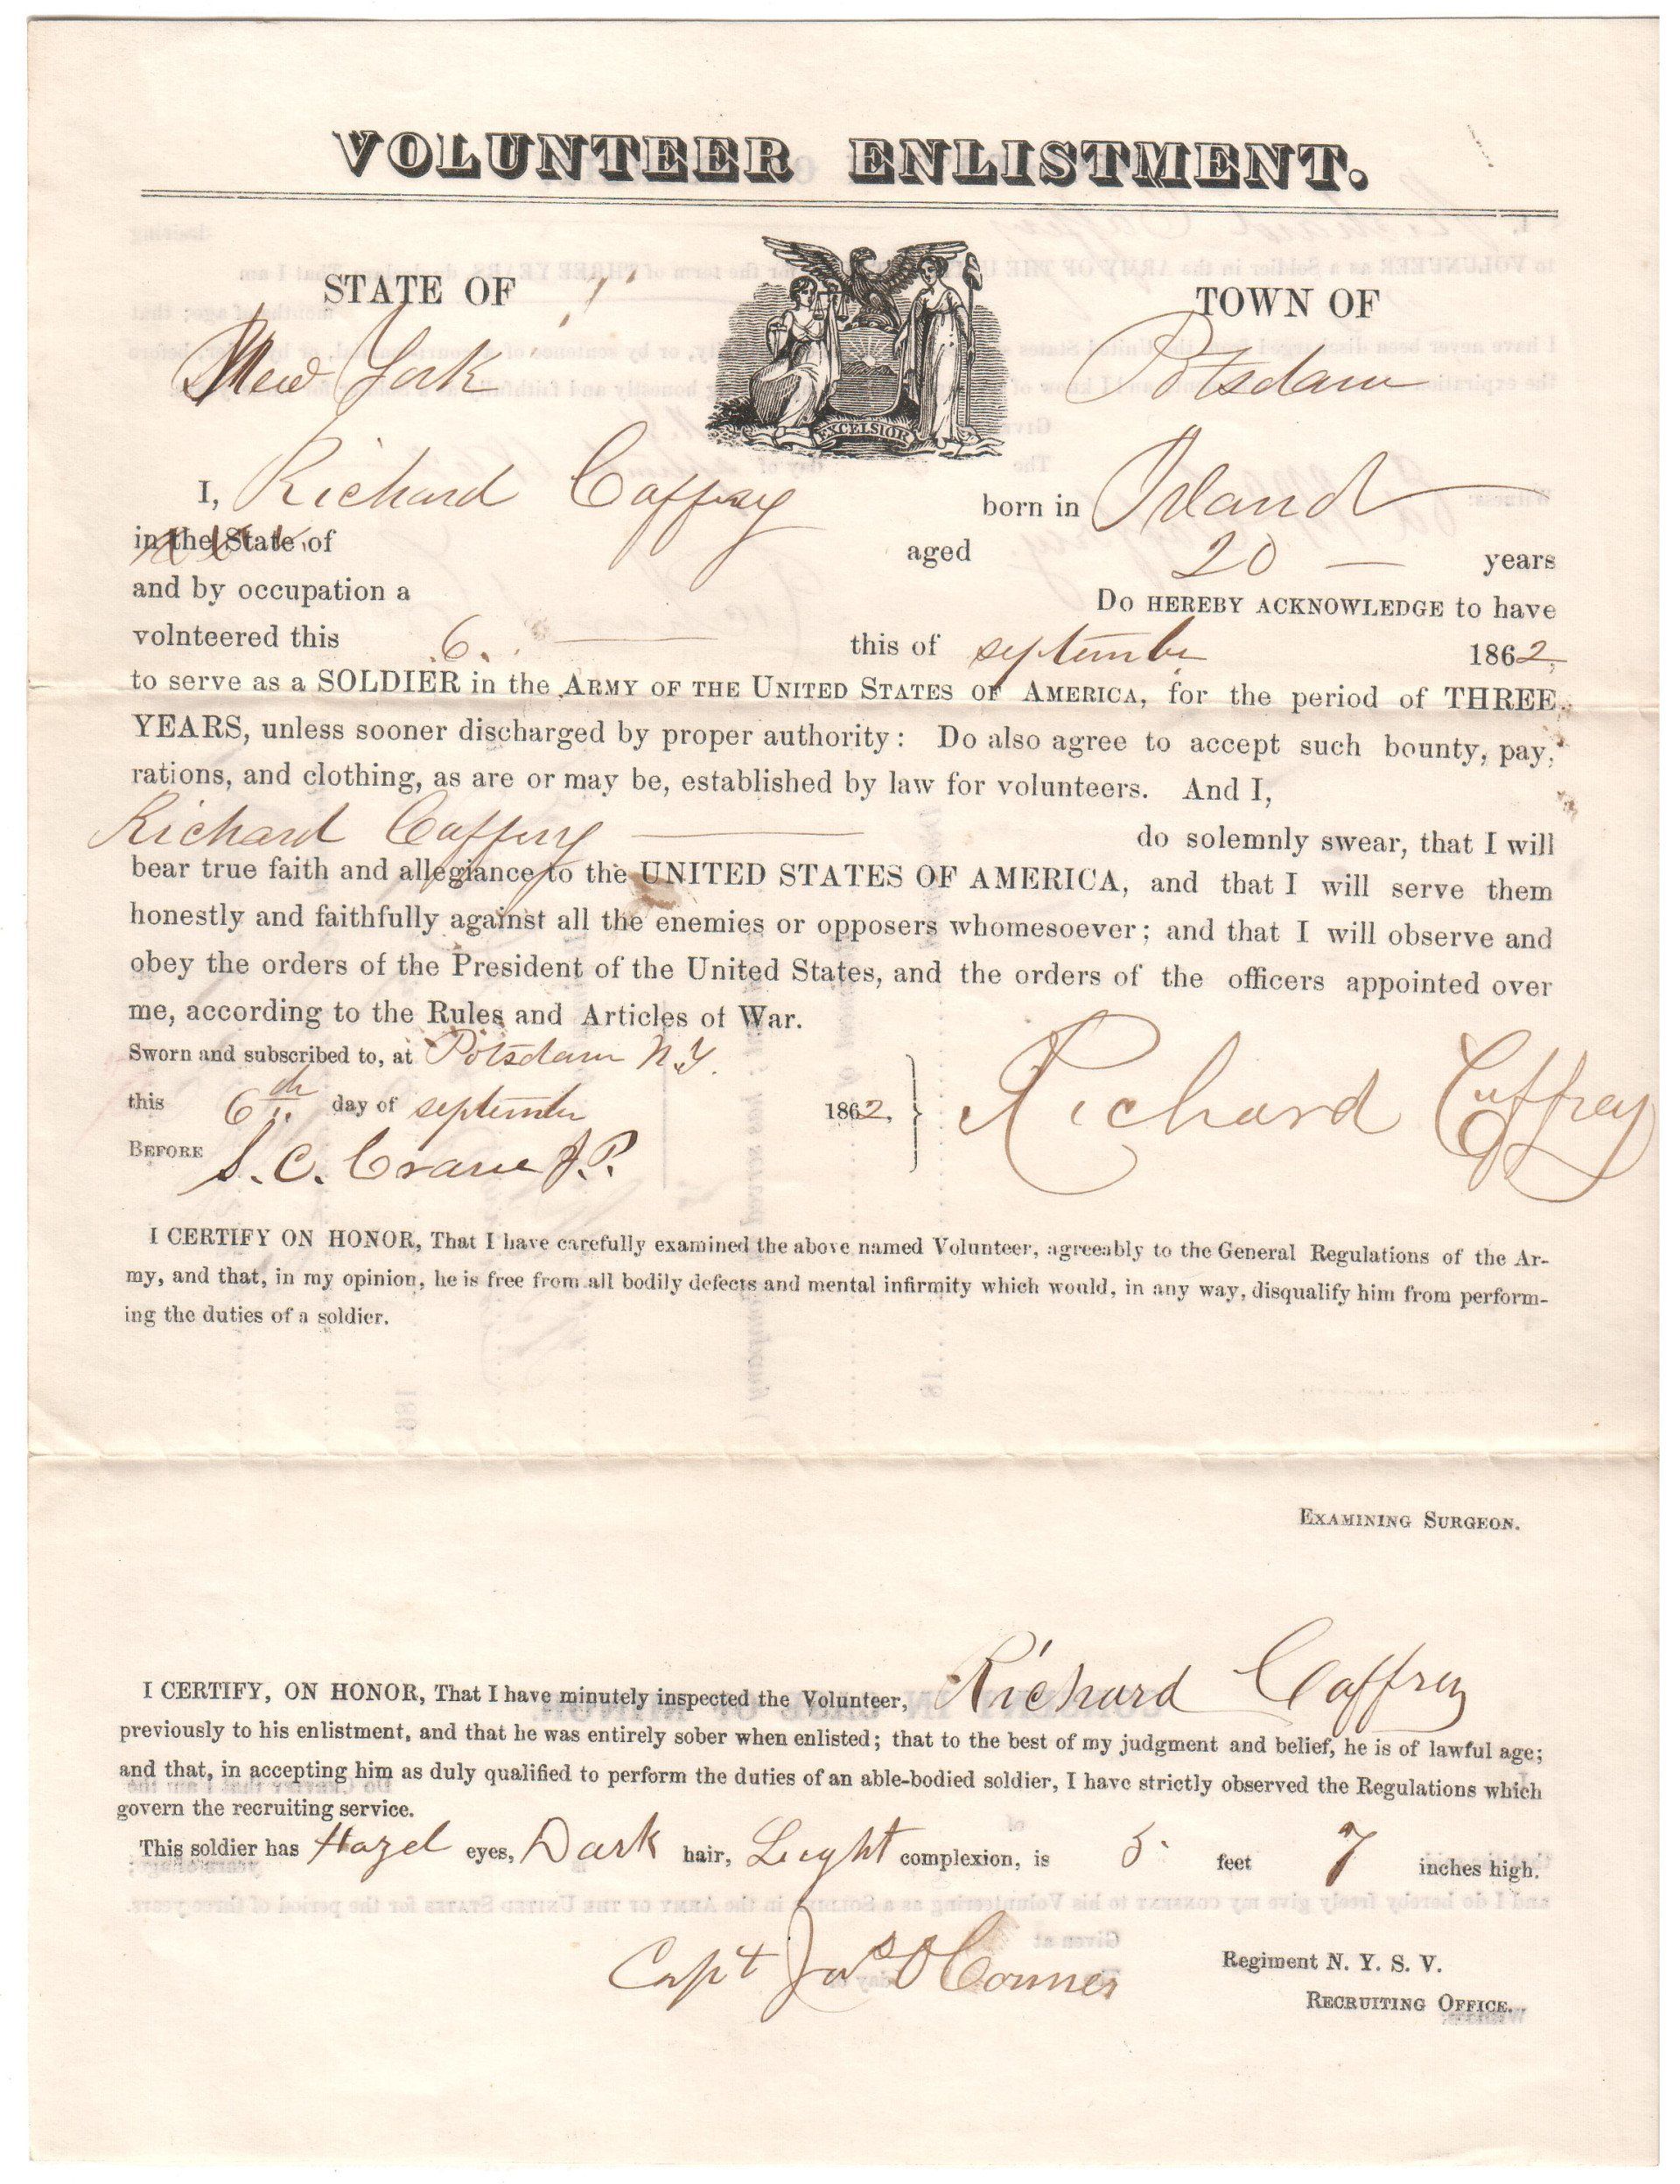 VOLUNTEER ENLISTMENT.
STATE OF
TOWN OF
New York
Potsdam
EXCELSIOR
I, Richard Caffrey born in Irland
in the State of aged 20 years
and by occupation a Do HEREBY ACKNOWLEDGE to have
volnteered this 6. this of september 1862,
to serve as a SOLDIER in the ARMY OF THE UNITED STATES OF AMERICA, for the period of THREE
YEARS, unless sooner discharged by proper authority: Do also agree to accept such bounty, pay,
rations, and clothing, as are or may be, established by law for volunteers. And I,
Richard Caffery do solemnly swear, that I will
bear true faith and allegiance to the UNITED STATES OF AMERICA, and that I will serve them
honestly and faithfully against all the enemies or opposers whomesoever; and that I will observe and
obey the orders of the President of the United States, and the orders of the officers appointed over
me, according to the Rules and Articles of War.
Sworn and subscribed to, at Potsdam N.Y.
this 6th day of september 1862, } Richard Caffrey
BEFORE S. C. Crane J.P.
I CERTIFY ON HONOR, That I have carefully examined the above named Volunteer, agreeably to the General Regulations of the Ar-
my, and that, in my opinion, he is free from all bodily defects and mental infirmity which would, in any way, disqualify him from perform-
ing the duties of a soldier.
EXAMINING SURGEON.
I CERTIFY, ON HONOR, That I have minutely inspected the Volunteer, Richard Caffrey
previously to his enlistment, and that he was entirely sober when enlisted; that to the best of my judgment and belief, he is of lawful age;
and that, in accepting him as duly qualified to perform the duties of an able-bodied soldier, I have strictly observed the Regulations which
govern the recruiting service.
This soldier has Hazel eyes, Dark hair, Light complexion, is 5 feet 7 inches high.
Capt Jas O Conner
Regiment N. Y. S. V.
RECRUITING OFFICE.